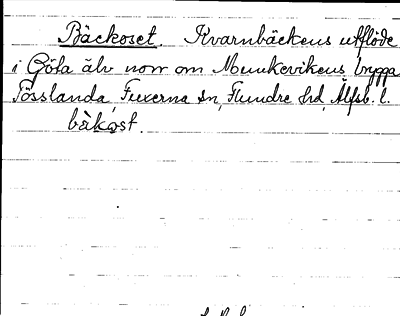 Bäckoset. Kvarnbäckens utflöde
i Göta älv norr om Munkevikens brygga
Tösslanda, Fuxerna sn, Flundre hd, Älfsb. l.
bäkost.